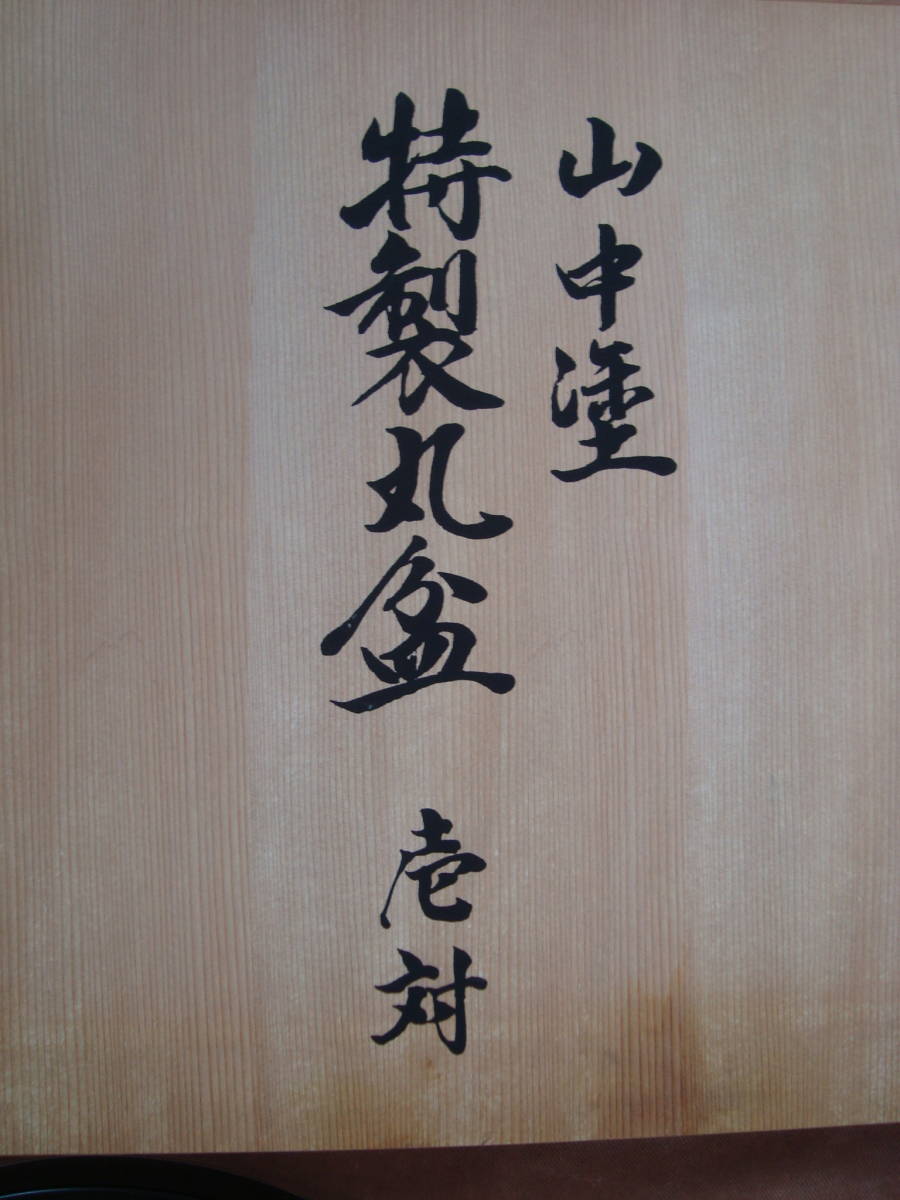 山中塗
特製丸盆 壱対